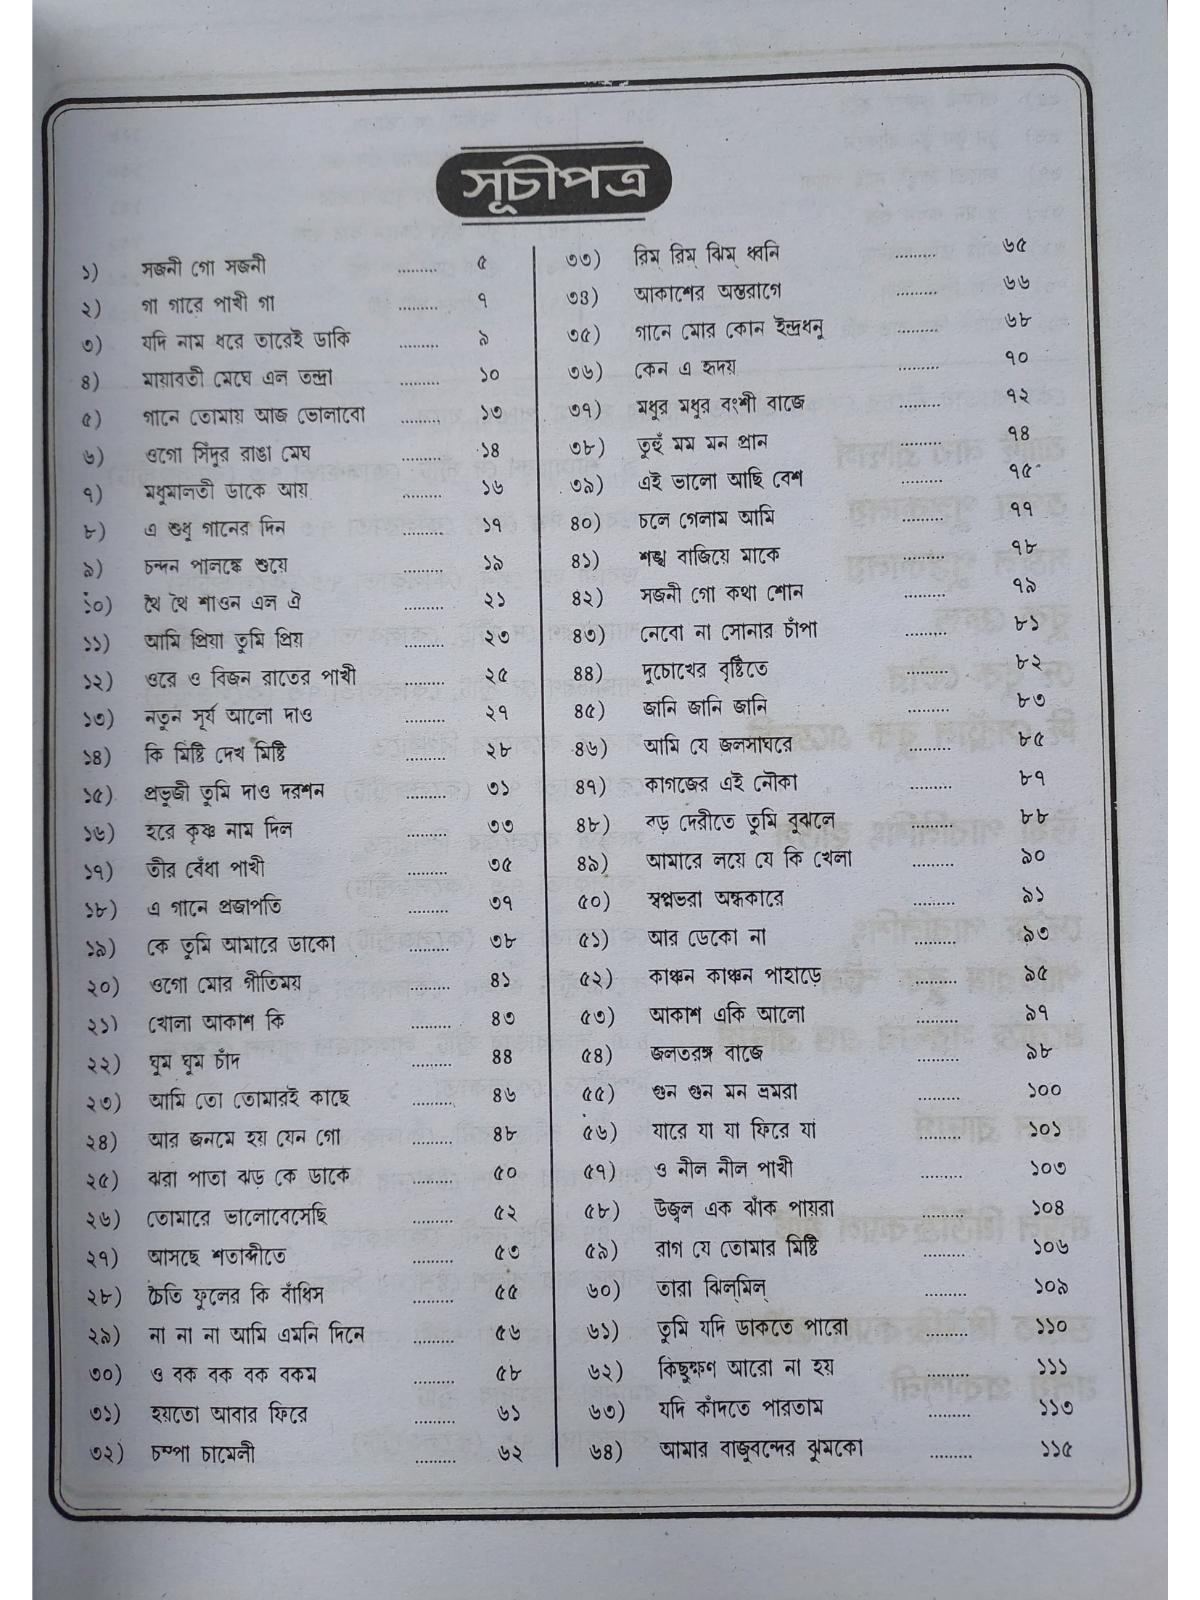 সূচীপত্র
১) সজনী গো সজনী ......... ৫
২) গা গারে পাখী গা ......... ৭
৩) যদি নাম ধরে তারেই ডাকি ......... ৯
৪) মায়াবতী মেঘে এল তন্দ্রা ......... ১০
৫) গানে তোমায় আজ ভোলাবো ......... ১৩
৬) ওগো সিঁদুর রাঙা মেঘ ......... ১৪
৭) মধুমালতী ডাকে আয় ......... ১৬
৮) এ শুধু গানের দিন ......... ১৭
৯) চন্দন পালঙ্কে শুয়ে ......... ১৯
১০) থৈ থৈ শাওন এল ঐ ......... ২১
১১) আমি প্রিয়া তুমি প্রিয় ......... ২৩
১২) ওরে ও বিজন রাতের পাখী ......... ২৫
১৩) নতুন সূর্য আলো দাও ......... ২৭
১৪) কি মিষ্টি দেখ মিষ্টি ......... ২৮
১৫) প্রভুজী তুমি দাও দরশন ......... ৩১
১৬) হরে কৃষ্ণ নাম দিল ......... ৩৩
১৭) তীর বেঁধা পাখী ......... ৩৫
১৮) এ গানে প্রজাপতি ......... ৩৭
১৯) কে তুমি আমারে ডাকো ......... ৩৮
২০) ওগো মোর গীতিময় ......... ৪১
২১) খোলা আকাশ কি ......... ৪৩
২২) ঘুম ঘুম চাঁদ ......... ৪৪
২৩) আমি তো তোমারই কাছে ......... ৪৬
২৪) আর জনমে হয় যেন গো ......... ৪৮
২৫) ঝরা পাতা ঝড় কে ডাকে ......... ৫০
২৬) তোমারে ভালোবেসেছি ......... ৫২
২৭) আসছে শতাব্দীতে ......... ৫৩
২৮) চৈতি ফুলের কি বাঁধিস ......... ৫৫
২৯) না না না আমি এমনি দিনে ......... ৫৬
৩০) ও বক বক বক বকম ......... ৫৮
৩১) হয়তো আবার ফিরে ......... ৬১
৩২) চম্পা চামেলী ......... ৬২
৩৩) রিম্ রিম্ ঝিম্ ধ্বনি ......... ৬৫
৩৪) আকাশের অস্তরাগে ......... ৬৬
৩৫) গানে মোর কোন ইন্দ্রধনু ......... ৬৮
৩৬) কেন এ হৃদয় ......... ৭০
৩৭) মধুর মধুর বংশী বাজে ......... ৭২
৩৮) তুহুঁ মম মন প্রান ......... ৭৪
৩৯) এই ভালো আছি বেশ ......... ৭৫
৪০) চলে গেলাম আমি ......... ৭৭
৪১) শঙ্খ বাজিয়ে মাকে ......... ৭৮
৪২) সজনী গো কথা শোন ......... ৭৯
৪৩) নেবো না সোনার চাঁপা ......... ৮১
৪৪) দুচোখের বৃষ্টিতে ......... ৮২
৪৫) জানি জানি জানি ......... ৮৩
৪৬) আমি যে জলসাঘরে ......... ৮৫
৪৭) কাগজের এই নৌকা ......... ৮৭
৪৮) বড় দেরীতে তুমি বুঝলে ......... ৮৮
৪৯) আমারে লয়ে যে কি খেলা ......... ৯০
৫০) স্বপ্নভরা অন্ধকারে ......... ৯১
৫১) আর ডেকো না ......... ৯৩
৫২) কাঞ্চন কাঞ্চন পাহাড়ে ......... ৯৫
৫৩) আকাশ একি আলো ......... ৯৭
৫৪) জলতরঙ্গ বাজে ......... ৯৮
৫৫) গুন গুন মন ভ্রমরা ......... ১০০
৫৬) যারে যা যা ফিরে যা ......... ১০১
৫৭) ও নীল নীল পাখী ......... ১০৩
৫৮) উজ্বল এক ঝাঁক পায়রা ......... ১০৪
৫৯) রাগ যে তোমার মিষ্টি ......... ১০৬
৬০) তারা ঝিল্‌মিল্ ......... ১০৯
৬১) তুমি যদি ডাকতে পারো ......... ১১০
৬২) কিছুক্ষণ আরো না হয় ......... ১১১
৬৩) যদি কাঁদতে পারতাম ......... ১১৩
৬৪) আমার বাজুবন্দের ঝুমকো ......... ১১৫